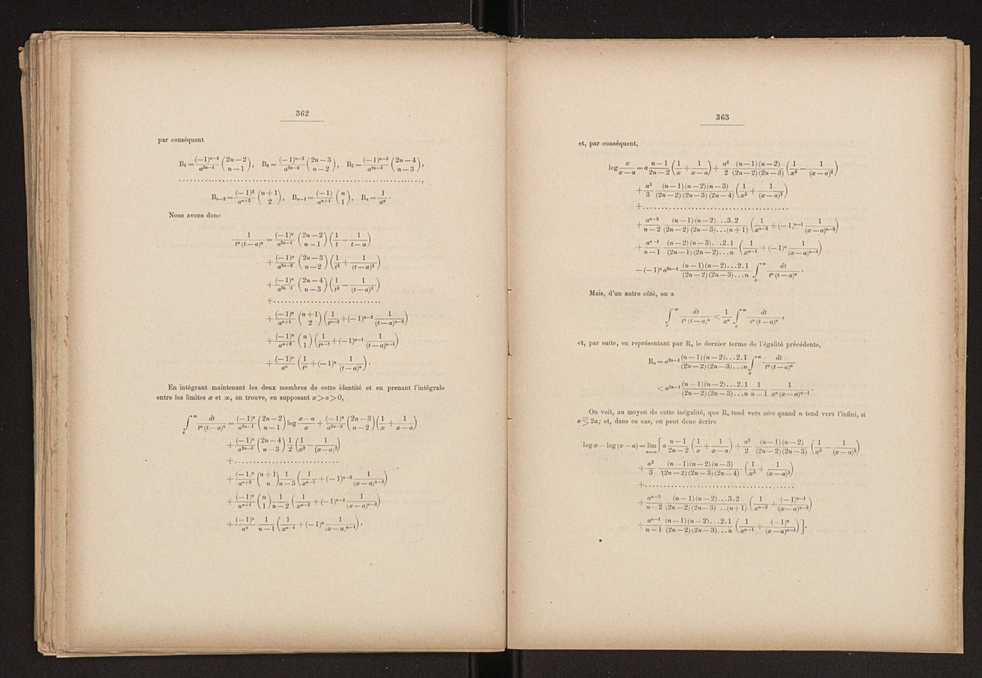 362
par conséquent
B₁ = (−1)ⁿ⁻¹/a²ⁿ⁻¹ (2n−2 / n−1), B₂ = (−1)ⁿ⁻²/a²ⁿ⁻² (2n−3 / n−2), B₃ = (−1)ⁿ⁻³/a²ⁿ⁻³ (2n−4 / n−3),
Bₙ₋₂ = (−1)²/aⁿ⁺² (n+1 / 2), Bₙ₋₁ = (−1)/aⁿ⁺¹ (n / 1), Bₙ = 1/aⁿ
Nous avons donc
1/tⁿ(t−a)ⁿ = (−1)ⁿ/a²ⁿ⁻¹ (2n−2 / n−1) (1/t − 1/(t−a))
+ (−1)ⁿ/a²ⁿ⁻² (2n−3 / n−2) (1/t² + 1/(t−a)²)
+ (−1)ⁿ/a²ⁿ⁻³ (2n−4 / n−3) (1/t³ − 1/(t−a)³)
+ . . . . . . . . . . . . . . . . . . . .
+ (−1)ⁿ/aⁿ⁺² (n+1 / 2) (1/tⁿ⁻² + (−1)ⁿ⁻² 1/(t−a)ⁿ⁻²)
+ (−1)ⁿ/aⁿ⁺¹ (n / 1) (1/tⁿ⁻¹ + (−1)ⁿ⁻¹ 1/(t−a)ⁿ⁻¹)
+ (−1)ⁿ/aⁿ (1/tⁿ + (−1)ⁿ 1/(t−a)ⁿ).
En intégrant maintenant les deux membres de cette identité et en prenant l'intégrale
entre les limites x et ∞, on trouve, en supposant x > a > 0,
∫ₓ^∞ dt/tⁿ(t−a)ⁿ = (−1)ⁿ/a²ⁿ⁻¹ (2n−2 / n−1) log (x−a)/x + (−1)ⁿ/a²ⁿ⁻² (2n−3 / n−2) (1/x + 1/(x−a))
+ (−1)ⁿ/a²ⁿ⁻³ (2n−4 / n−3) 1/2 (1/x² − 1/(x−a)²)
+ . . . . . . . . . . . . . . . . . . . .
+ (−1)ⁿ/aⁿ⁺² (n+1 / n) 1/(n−3) (1/xⁿ⁻³ + (−1)ⁿ⁻² 1/(x−a)ⁿ⁻³)
+ (−1)ⁿ/aⁿ⁺¹ (n / 1) 1/(n−2) (1/xⁿ⁻² + (−1)ⁿ⁻¹ 1/(x−a)ⁿ⁻²)
+ (−1)ⁿ/aⁿ 1/(n−1) (1/xⁿ⁻¹ + (−1)ⁿ 1/(x−a)ⁿ⁻¹),
363
et, par conséquent,
log x/(x−a) = a (n−1)/(2n−2) (1/x + 1/(x−a)) + a²/2 (n−1)(n−2)/(2n−2)(2n−3) (1/x² − 1/(x−a)²)
+ a³/3 (n−1)(n−2)(n−3)/(2n−2)(2n−3)(2n−4) (1/x³ + 1/(x−a)³)
+ . . . . . . . . . . . . . . . . . . . .
+ aⁿ⁻²/(n−2) (n−1)(n−2)...3.2/(2n−2)(2n−3)...(n+1) (1/xⁿ⁻² + (−1)ⁿ⁻¹ 1/(x−a)ⁿ⁻²)
+ aⁿ⁻¹/(n−1) (n−2)(n−3)...2.1/(2n−1)(2n−2)...n (1/xⁿ⁻¹ + (−1)ⁿ 1/(x−a)ⁿ⁻¹)
− (−1)ⁿ a²ⁿ⁻¹ (n−1)(n−2)...2.1/(2n−2)(2n−3)...n ∫ₓ^∞ dt/tⁿ(t−a)ⁿ.
Mais, d'un autre côté, on a
∫ₓ^∞ dt/tⁿ(t−a)ⁿ < 1/xⁿ ∫ₓ^∞ dt/tⁿ(t−a)ⁿ,
et, par suite, en représentant par Rₙ le dernier terme de l'égalité précédente,
Rₙ = a²ⁿ⁻¹ (n−1)(n−2)...2.1/(2n−2)(2n−3)...n ∫ₓ^∞ dt/tⁿ(t−a)ⁿ
< a²ⁿ⁻¹ (n−1)(n−2)...2.1/(2n−2)(2n−3)...n 1/(n−1) 1/xⁿ(x−a)ⁿ⁻¹.
On voit, au moyen de cette inégalité, que Rₙ tend vers zéro quand n tend vers l'infini, si
x ≧ 2a; et, dans ce cas, on peut donc écrire
log x − log (x−a) = lim n=∞ [a (n−1)/(2n−2) (1/x + 1/(x−a)) + a²/2 (n−1)(n−2)/(2n−2)(2n−3) (1/x² − 1/(x−a)²)
+ a³/3 (n−1)(n−2)(n−3)/(2n−2)(2n−3)(2n−4) (1/x³ + 1/(x−a)³)
+ . . . . . . . . . . . . . . . . . . . .
+ aⁿ⁻²/(n−2) (n−1)(n−2)...3.2/(2n−2)(2n−3)...(n+1) (1/xⁿ⁻² + (−1)ⁿ⁻¹/(x−a)ⁿ⁻²)
+ aⁿ⁻¹/(n−1) (n−1)(n−2)...2.1/(2n−2)(2n−3)...n (1/xⁿ⁻¹ + (−1)ⁿ/(x−a)ⁿ⁻¹)].